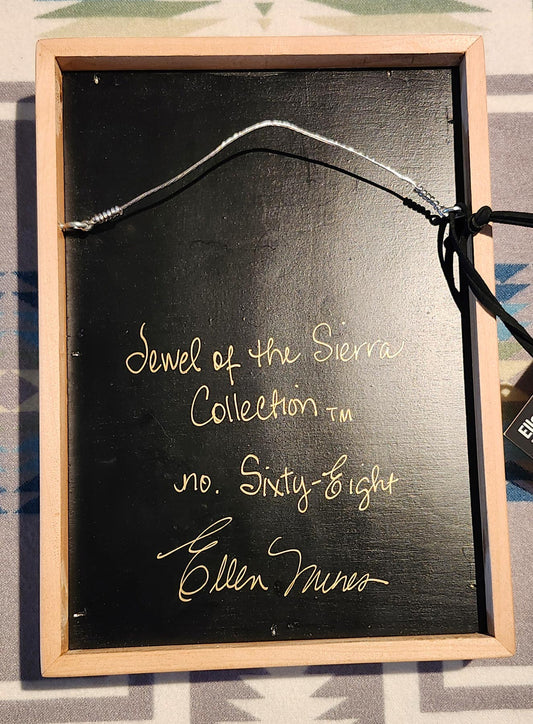 Jewel of the Sierra
Collection TM
no. Sixty-Eight
Ellen Nunes